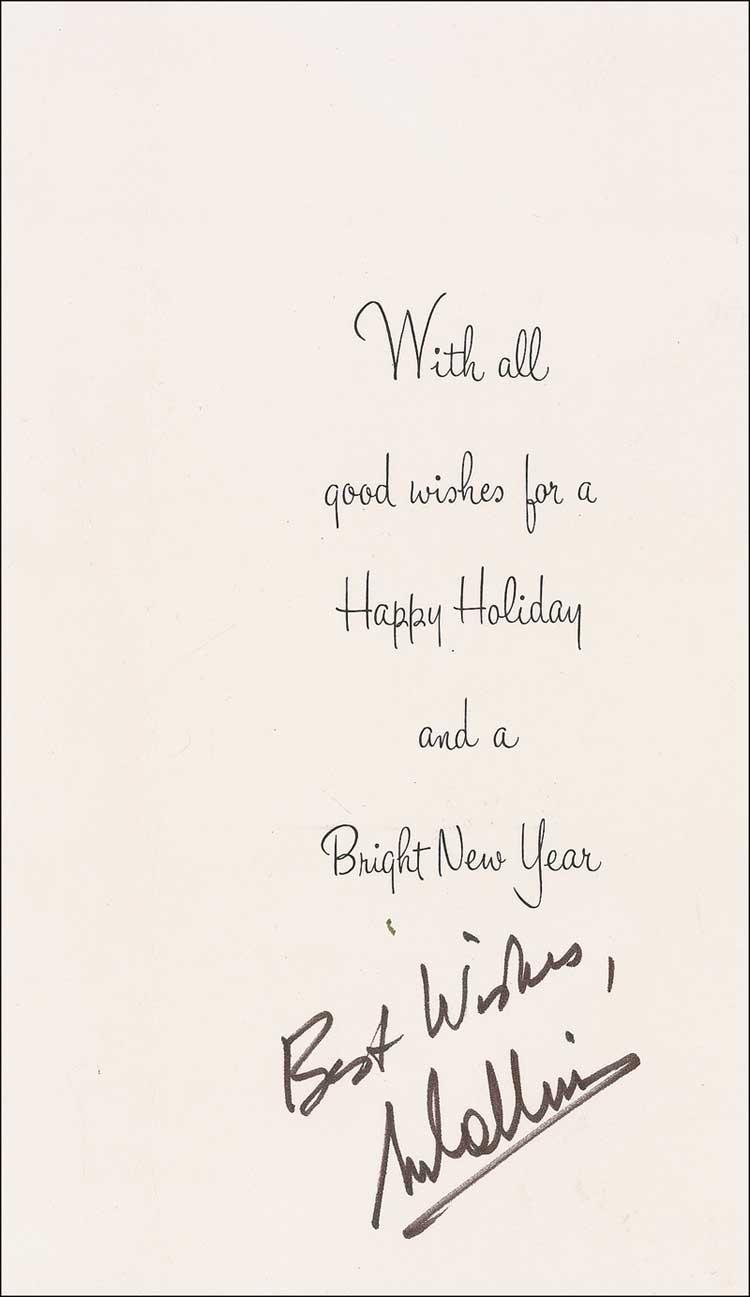 With all
good wishes for a
Happy Holiday
and a
Bright New Year
Best Wishes,
MCollins